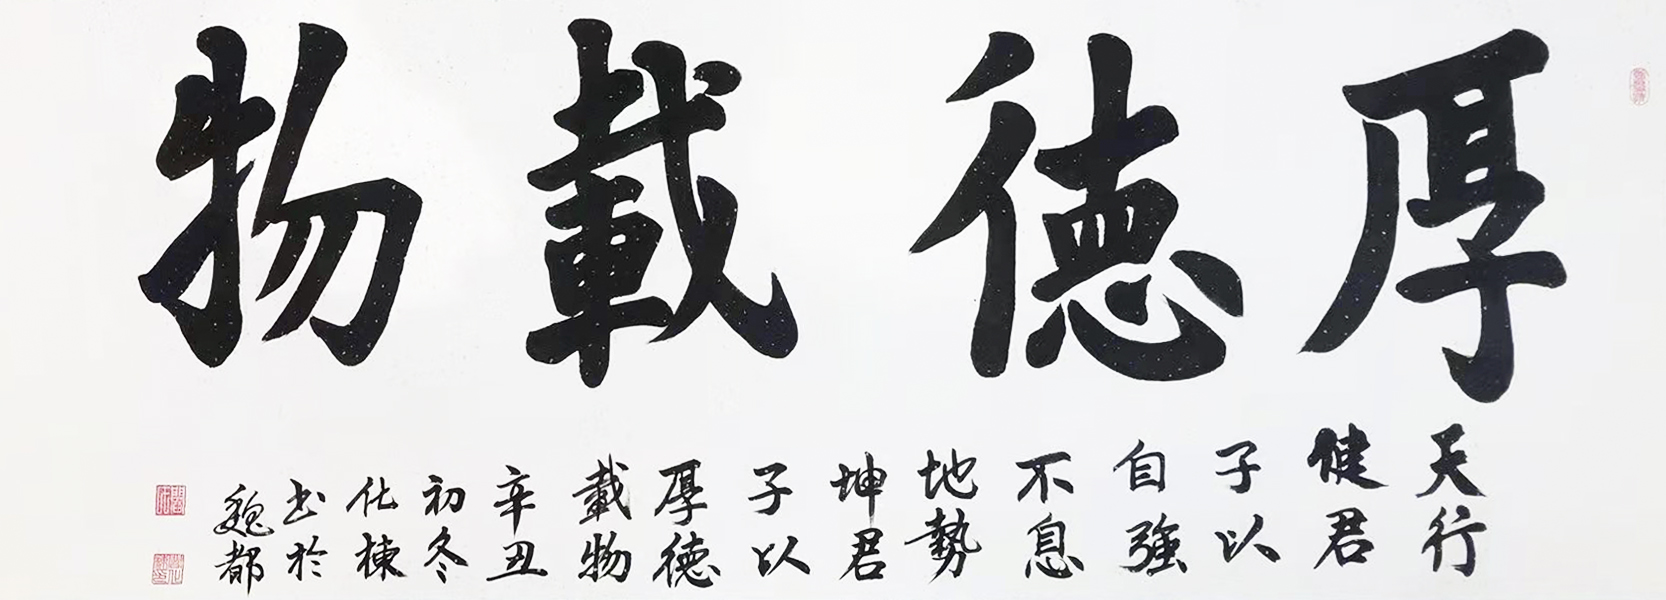 厚德載物
天行
健君
子以
自強
不息
地勢
坤君
子以
厚德
載物
辛丑
初冬
化棟
书於
魏都